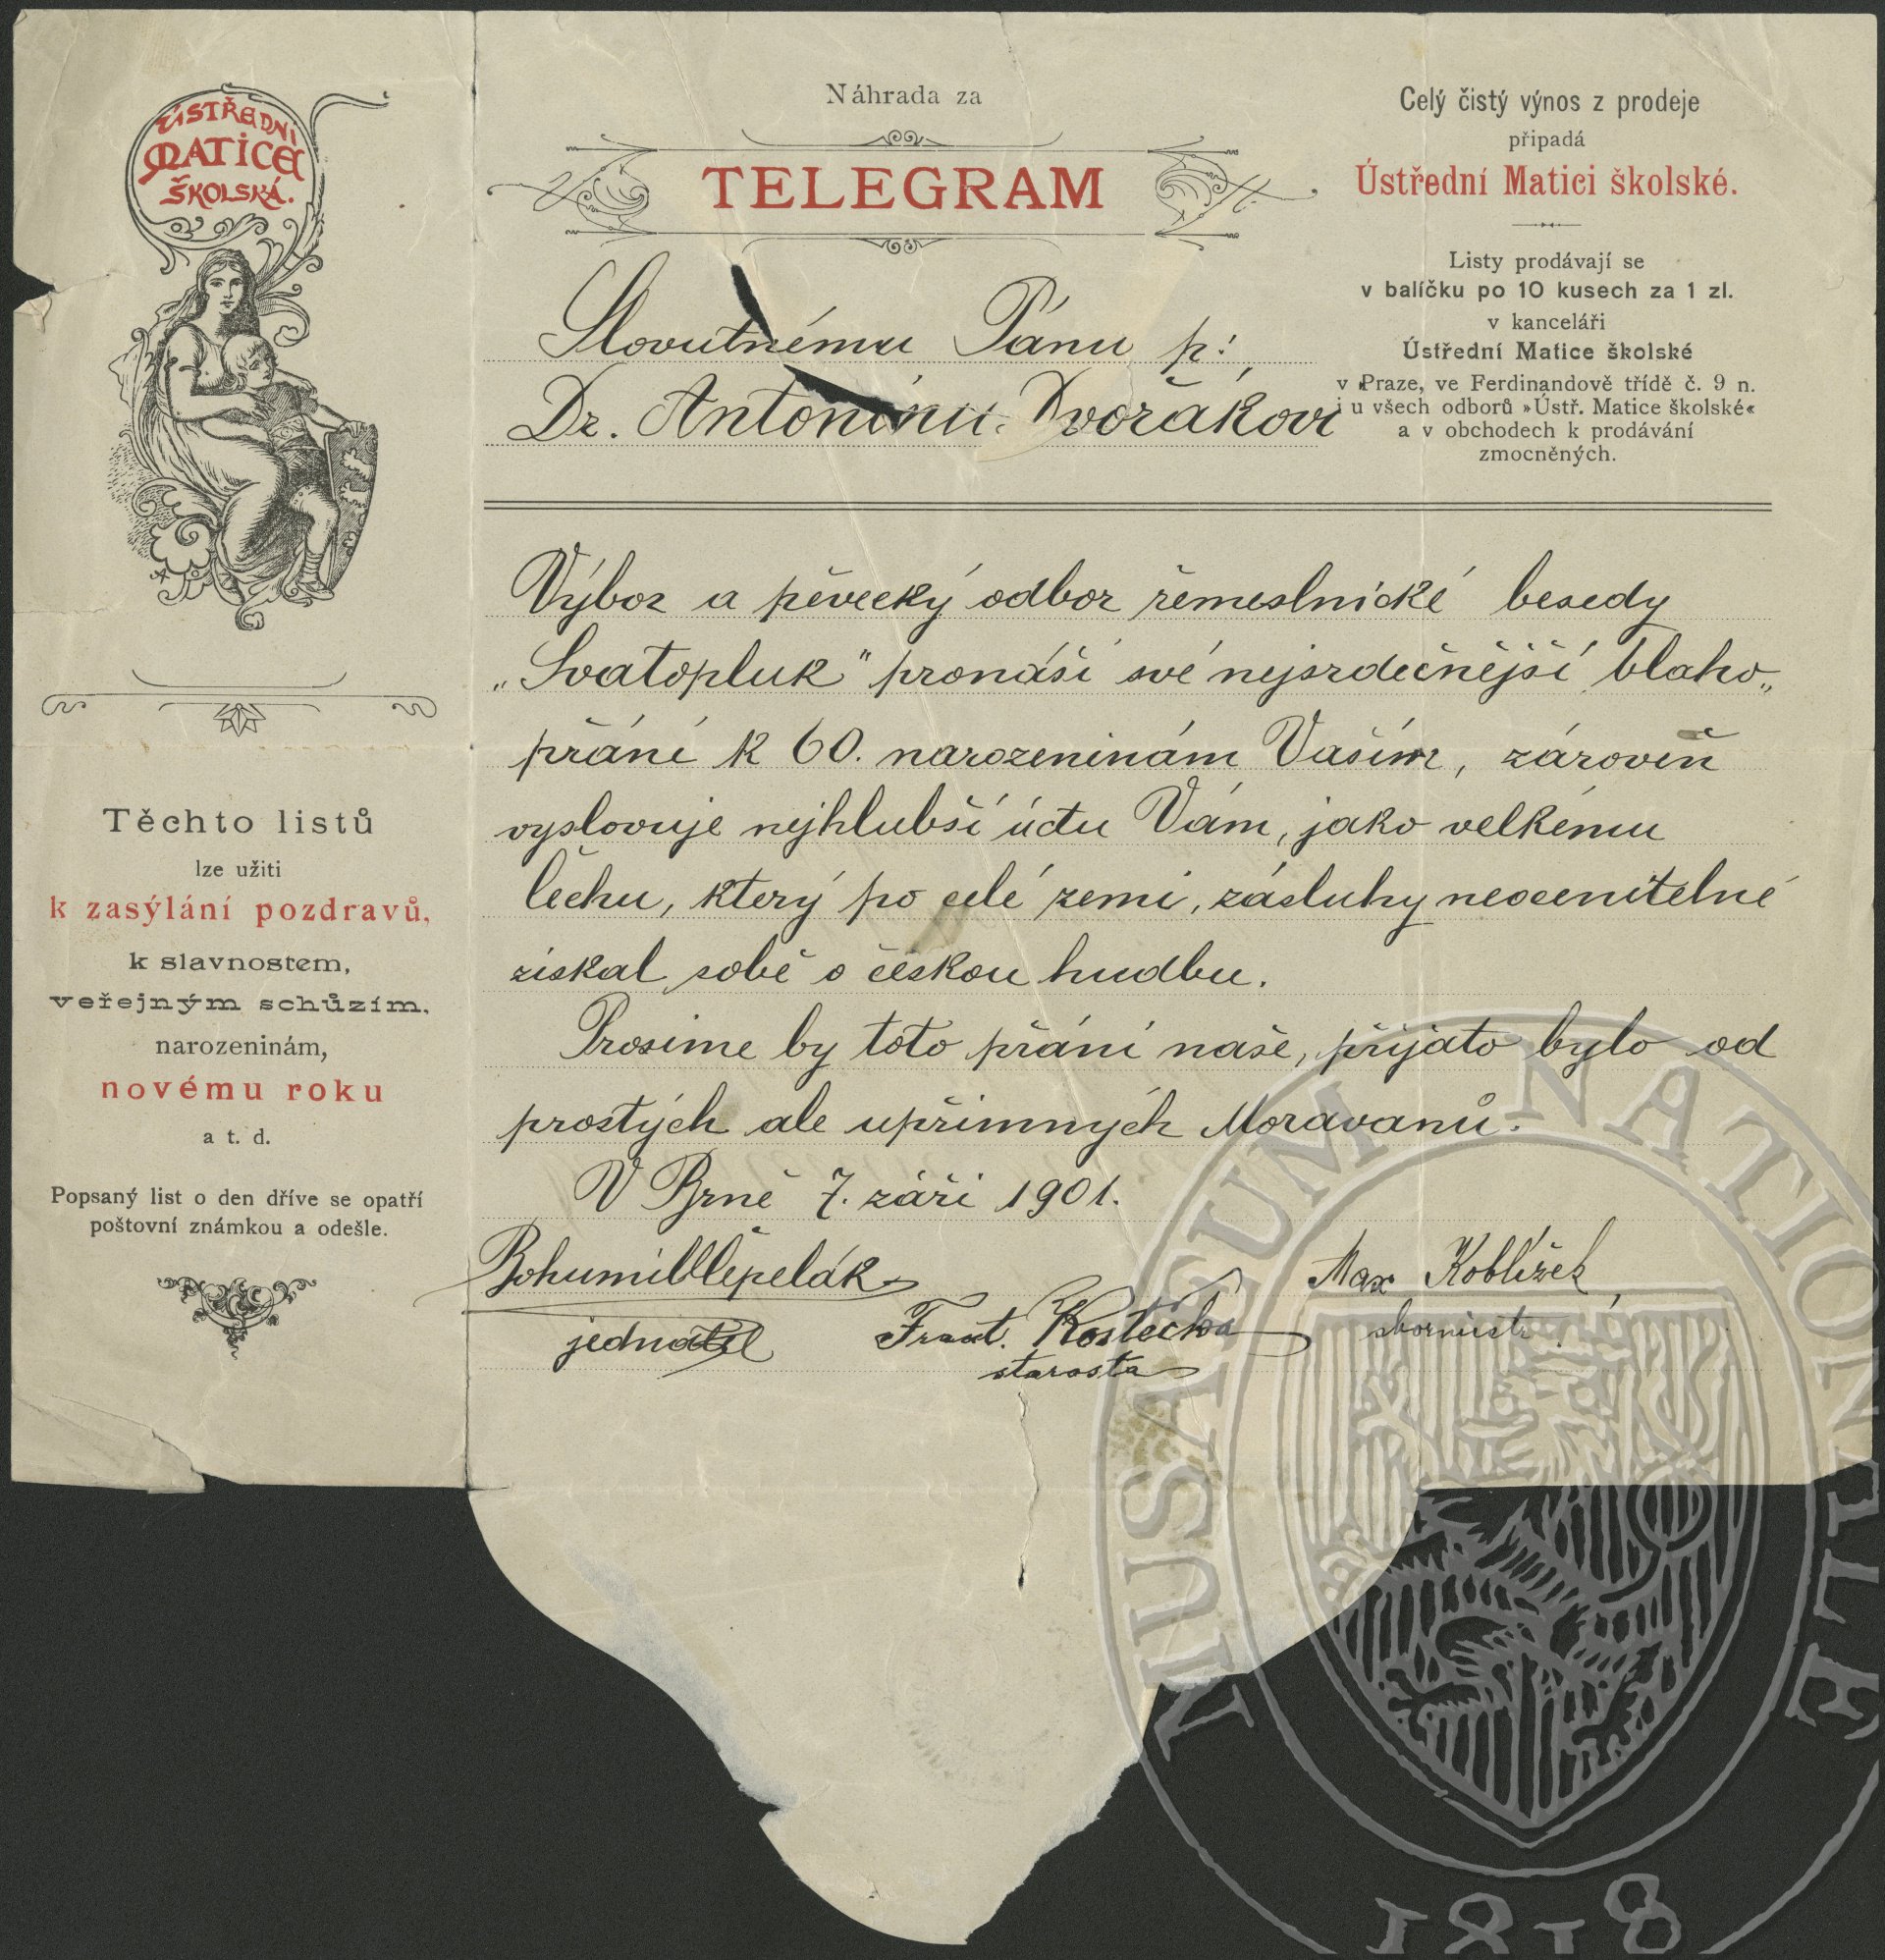 ÚSTŘEDNÍ
MATICE
ŠKOLSKÁ.
Těchto listů
lze užiti
k zasýlání pozdravů,
k slavnostem,
veřejným schůzím,
narozeninám,
novému roku
a t. d.
Popsaný list o den dříve se opatří
poštovní známkou a odešle.
Náhrada za
TELEGRAM
Celý čistý výnos z prodeje
připadá
Ústřední Matici školské.
Listy prodávají se
v balíčku po 10 kusech za 1 zl.
v kanceláři
Ústřední Matice školské
v Praze, ve Ferdinandově třídě č. 9 n.
i u všech odborů »Ústř. Matice školské«
a v obchodech k prodávání
zmocněných.
Slovutnému Pánu p:,
Dr. Antonínu Dvořákovi
Výbor a pěvecký odbor řemeslnické besedy
„Svatopluk" pronáší své nejsrdečnější blaho„
přání k 60. narozeninám Vaším, zároveň
vyslovuje nejhlubší úctu Vám, jako velkému
Čechu, který po celé zemi, zásluhy neocenitelné
získal sobě o českou hudbu.
Prosíme by toto přání naše, přijato bylo od
prostých ale upřímných Moravanů.
V Brně 7. září 1901.
Bohumil Čepelák
jednatel
Frant. Kostečka
starosta
Max Koblížek,
sbormistr.
MUSAEUM NATIONALE
1818